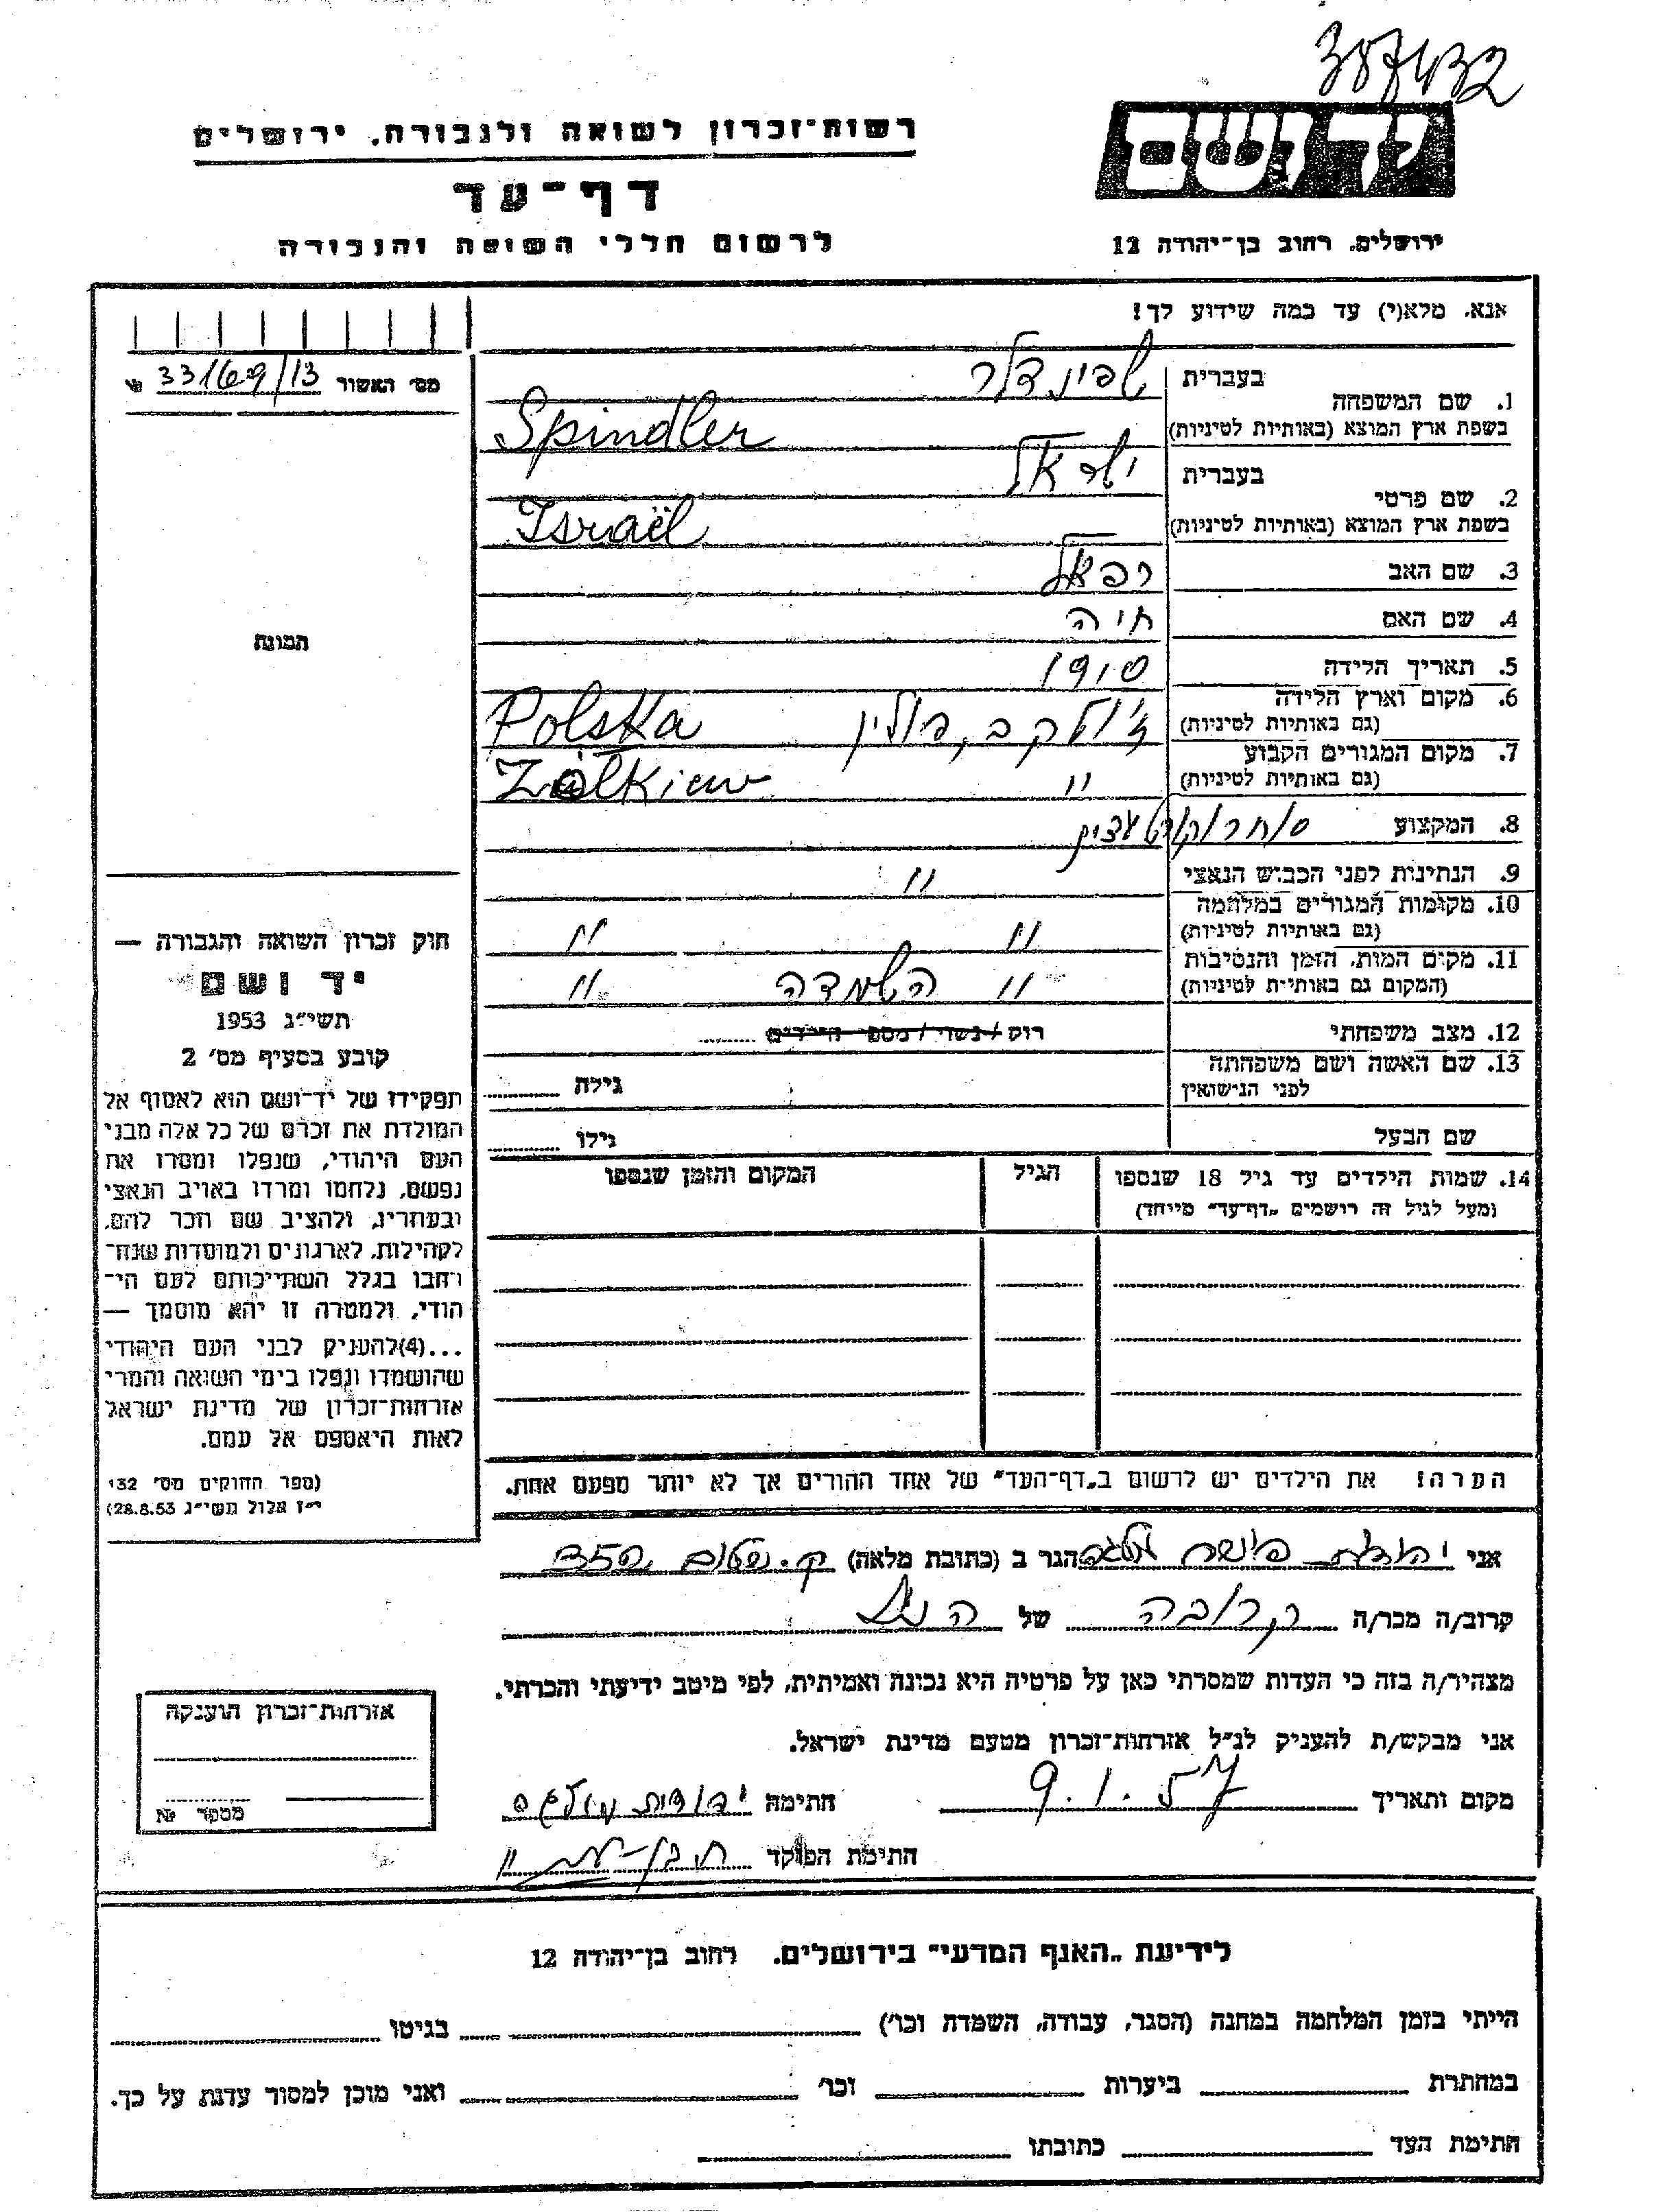 387432
יד ושם
רשות־זכרון לשואה ולגבורה, ירושלים
דף־עד
לרשום חללי השואה והגבורה
ירושלים, רחוב בן־יהודה 12
אנא, מלא(י) עד כמה שידוע לך!
מס׳ האשור 33169/13
בעברית שפינדלר
1. שם המשפחה
בשפת ארץ המוצא (באותיות לטיניות) Spindler
בעברית ישראל
2. שם פרטי
בשפת ארץ המוצא (באותיות לטיניות) Israël
3. שם האב רפאל
4. שם האם חיה
5. תאריך הלידה 1910
6. מקום וארץ הלידה ז׳ולקב, פולין Polska
(גם באותיות לטיניות)
7. מקום המגורים הקבוע " Zółkiew
(גם באותיות לטיניות)
8. המקצוע סוחר
9. הנתינות לפני הכבוש הנאצי "
10. מקומות המגורים במלחמה " "
(גם באותיות לטיניות)
11. מקום המות, הזמן והנסיבות " השמדה "
(המקום גם באותיות לטיניות)
12. מצב משפחתי רווק / נשוי / מספר הילדים
13. שם האשה ושם משפחתה
לפני הנישואין גילה
שם הבעל גילו
14. שמות הילדים עד גיל 18 שנספו הגיל המקום והזמן שנספו
(מעל לגיל זה רושמים „דף־עד" מיוחד)
הערה! את הילדים יש לרשום ב„דף־העד" של אחד ההורים אך לא יותר מפעם אחת.
תמונה
חוק זכרון השואה והגבורה —
יד ושם
תשי״ג 1953
קובע בסעיף מס׳ 2
תפקידו של יד־ושם הוא לאסוף אל
המולדת את זכרם של כל אלה מבני
העם היהודי, שנפלו ומסרו את
נפשם, נלחמו ומרדו באויב הנאצי
ובעוזריו, ולהציב שם וזכר להם,
לקהילות, לארגונים ולמוסדות שנח־
רבו בגלל השתייכותם לעם הי־
הודי, ולמטרה זו יהא מוסמך —
...(4)להעניק לבני העם היהודי
שהושמדו ונפלו בימי השואה והמרי
אזרחות־זכרון של מדינת ישראל
לאות היאספם אל עמם.
(ספר החוקים מס׳ 132
י״ז אלול תשי״ג 28.8.53)
אני יהודית פישר הגר ב (כתובת מלאה) ק.
קרוב/ה מכר/ה קרובה של הנ״ל
מצהיר/ה בזה כי העדות שמסרתי כאן על פרטיה היא נכונה ואמיתית, לפי מיטב ידיעתי והכרתי.
אני מבקש/ת להעניק לנ״ל אזרחות־זכרון מטעם מדינת ישראל.
מקום ותאריך 9.1.57 חתימה יהודית
חתימת הפוקד
אזרחות־זכרון הוענקה
מספר №
לידיעת „האגף המדעי" בירושלים, רחוב בן־יהודה 12
הייתי בזמן המלחמה במחנה (הסגר, עבודה, השמדה וכו׳) בגיטו
במחתרת ביערות וכו׳ ואני מוכן למסור עדות על כך.
חתימת העד כתובתו